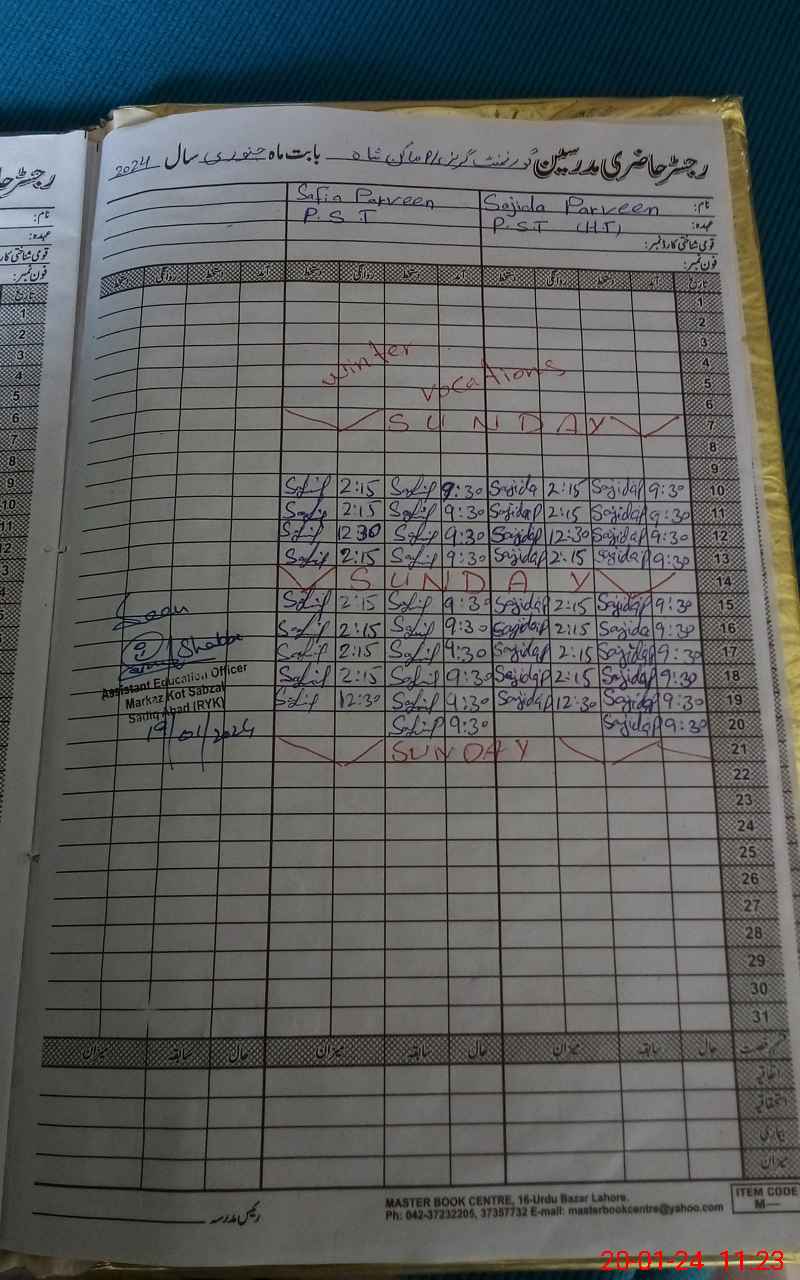 رجسٹر حاضری مدرسین گورنمنٹ گرلز بابت ماہ جنوری سال 2024
نام: Sajida Parveen Safia Parveen
عہدہ: P.S.T (H.T) P.S.T
قومی شناختی کارڈ نمبر:
فون نمبر:
تاریخ آمد دستخط روانگی دستخط آمد دستخط روانگی دستخط آمد دستخط روانگی دستخط
1
2
3
winter
4
vocations
5
6
SUNDAY 7
8
9
Safia 2:15 Safia 9:30 Sajida 2:15 Sajidap 9:30 10
Safia 2:15 Safia 9:30 Sajidap 2:15 Sajidap 9:30 11
Safia 12:30 Safia 9:30 Sajidap 12:30 Sajidap 9:30 12
Safia 2:15 Safia 9:30 Sajidap 2:15 Sajidap 9:30 13
SUNDAY 14
Safia 2:15 Safia 9:30 Sajidap 2:15 Sajidap 9:30 15
Safia 2:15 Safia 9:30 Sajidap 2:15 Sajida 9:30 16
Safia 2:15 Safia 9:30 Sajidap 2:15 Sajidap 9:30 17
Safia 2:15 Safia 9:30 Sajidap 2:15 Sajidap 9:30 18
Safia 12:30 Safia 9:30 Sajidap 12:30 Sajidap 9:30 19
Safia 9:30 Sajidap 9:30 20
SUNDAY 21
Assistant Education Officer
Markaz Kot Sabzal
Sadiq Abad (RYK)
19/01/2024
22
23
24
25
26
27
28
29
30
31
قسم رخصت حال سابقہ میزان حال سابقہ میزان حال سابقہ میزان
اتفاقیہ
استحقاقیہ
بیماری
میزان
رئیس مدرسہ
MASTER BOOK CENTRE, 16-Urdu Bazar Lahore.
Ph: 042-37232205, 37357732 E-mail: masterbookcentre@yahoo.com
ITEM CODE
M—
28-01-24 11:23